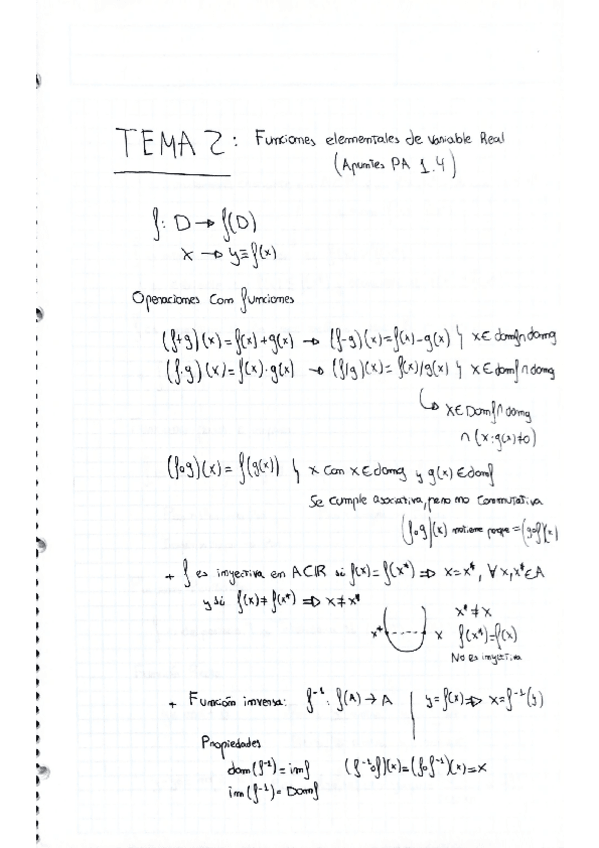 TEMA 2: Funciones elementales de variable Real
(Apuntes PA 1.4)
f: D → f(D)
x → y ≡ f(x)
Operaciones con funciones
(f+g)(x) = f(x)+g(x) → (f-g)(x) = f(x)-g(x) } x ∈ domf ∩ domg
(f·g)(x) = f(x)·g(x) → (f/g)(x) = f(x)/g(x) } x ∈ domf ∩ domg
↳ x ∈ Domf ∩ domg
∩ (x: g(x)≠0)
(f∘g)(x) = f(g(x)) } x con x ∈ domg y g(x) ∈ domf
Se cumple asociativa, pero no conmutativa
(f∘g)(x) no tiene porque = (g∘f)(x)
+ f es inyectiva en A⊂IR si f(x) = f(x*) ⇒ x = x*, ∀ x, x* ∈ A
y si f(x) ≠ f(x*) ⇒ x ≠ x*
x* ≠ x
x* x f(x*) = f(x)
No es inyectiva
+ Función inversa: f⁻¹: f(A) → A | y = f(x) ⇒ x = f⁻¹(y)
Propiedades
dom(f⁻¹) = imf (f⁻¹∘f)(x) = (f∘f⁻¹)(x) = x
im(f⁻¹) = Domf